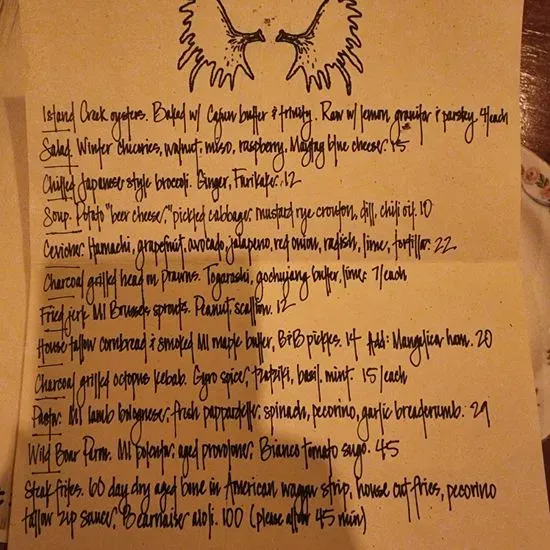 Island Creek oysters. Baked w/ Cajun butter & trinity. Raw w/ lemon, granita & parsley. 4/each
Salad. Winter chicories, walnut, miso, raspberry. Maytag blue cheese. 15
Chilled Japanese style broccoli. Ginger, Furikake. 12
Soup. Potato "beer cheese," pickled cabbage, mustard rye crouton, dill, chili oil. 10
Ceviche. Hamachi, grapefruit, avocado, jalapeno, red onion, radish, lime, tortilla. 22
Charcoal grilled head on Prawns. Togarashi, gochujang butter, lime. 7/each
Fried jerk MI Brussels sprouts. Peanut, scallion. 12
House tallow cornbread & smoked MI maple butter, B&B pickles. 14 Add: Mangalica ham. 20
Charcoal grilled octopus kebab. Gyro spice, tzatziki, basil, mint. 15/each
Pasta. MI lamb bolognese, fresh pappardelle, spinach, pecorino, garlic breadcrumb. 29
Wild Boar Parm. MI polenta, aged provolone, Bianco tomato sugo. 45
Steak frites. 60 day dry aged bone in American wagyu strip, house cut fries, pecorino
tallow zip sauce, Bearnaise aioli. 100 (please allow 45 min)